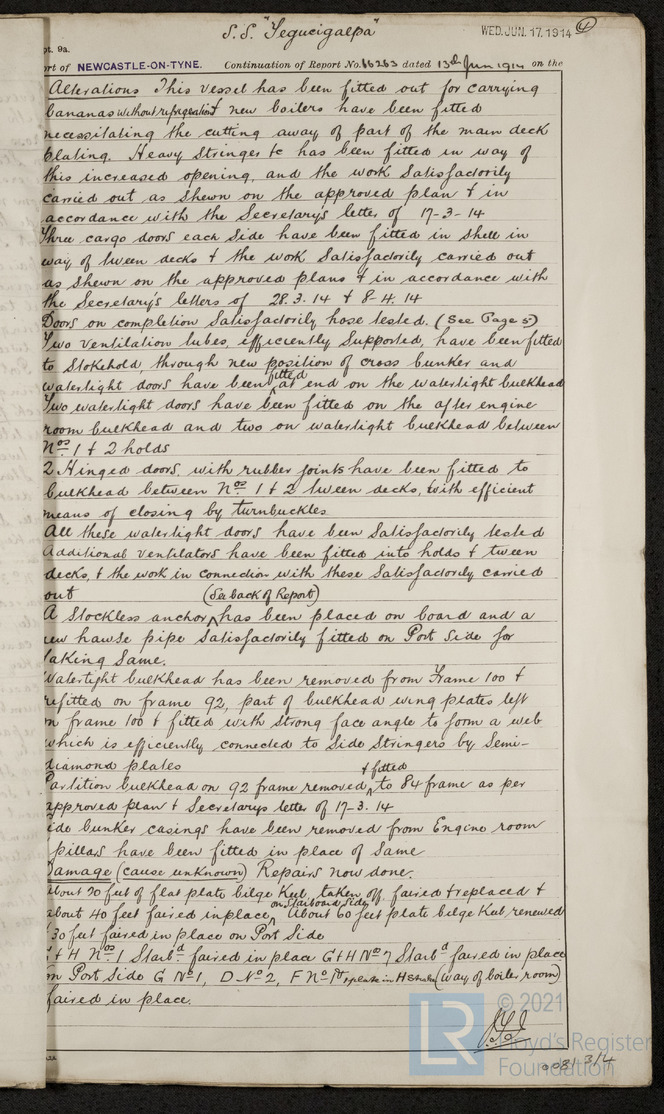 S.S. "Tegucigalpa"
WED. JUN. 17. 1914
pt. 9a.
rt of NEWCASTLE-ON-TYNE. Continuation of Report No. 66263 dated 13th Jun 1914 on the
Alterations This vessel has been fitted out for carrying
bananas without refrigeration & new boilers have been fitted
necessitating the cutting away of part of the main deck
plating. Heavy Stringer &c has been fitted in way of
this increased opening, and the work Satisfactorily
carried out as shewn on the approved plan & in
accordance with the Secretary's letter of 17-3-14
Three cargo doors each Side have been fitted in Shell in
way of tween decks & the work Satisfactorily carried out
as Shewn on the approved plans & in accordance with
the Secretary's letters of 28.3.14 & 8-4.14
Doors on completion Satisfactorily hose tested. (See Page 5)
Two ventilation tubes, efficiently Supported, have been fitted
to Stokehold, through new position of cross bunker and
watertight doors have been fitted at end on the watertight bulkhead
Two watertight doors have been fitted on the after engine
room bulkhead and two on watertight bulkhead between
Nos 1 & 2 holds
2 Hinged doors, with rubber joints have been fitted to
bulkhead between Nos 1 & 2 tween decks, with efficient
means of closing by turnbuckles
All these watertight doors have been Satisfactorily tested
Additional ventilators have been fitted into holds & tween
decks, & the work in connection with these Satisfactorily carried
out (See back of Report)
A Stockless anchor has been placed on board and a
new hawse pipe Satisfactorily fitted on Port Side for
taking Same.
Watertight bulkhead has been removed from Frame 100 &
refitted on frame 92, part of bulkhead wing plates left
on frame 100 & fitted with strong face angle to form a web
which is efficiently connected to Side Stringers by Semi-
diamond plates
Partition bulkhead on 92 frame removed & fitted to 84 frame as per
approved plan & Secretarys letter of 17-3.14
ide bunker casings have been removed from Engine room
pillars have been fitted in place of Same
Damage (cause unknown) Repairs now done.
about 70 feet of flat plate bilge Keel, taken off faired & replaced &
about 40 feet faired in place on Starboard Side About 60 feet plate bilge Keel, renewed
30 feet faired in place on Port Side
G & H Nos 1 Starbd faired in place G & H No 7 Starbd faired in place
on Port Side G No 1, D No 2, F No 1 plate in H Strake (way of boiler room)
faired in place.
© 2021
LR
Lloyd's Register
Foundation
0081 3/4